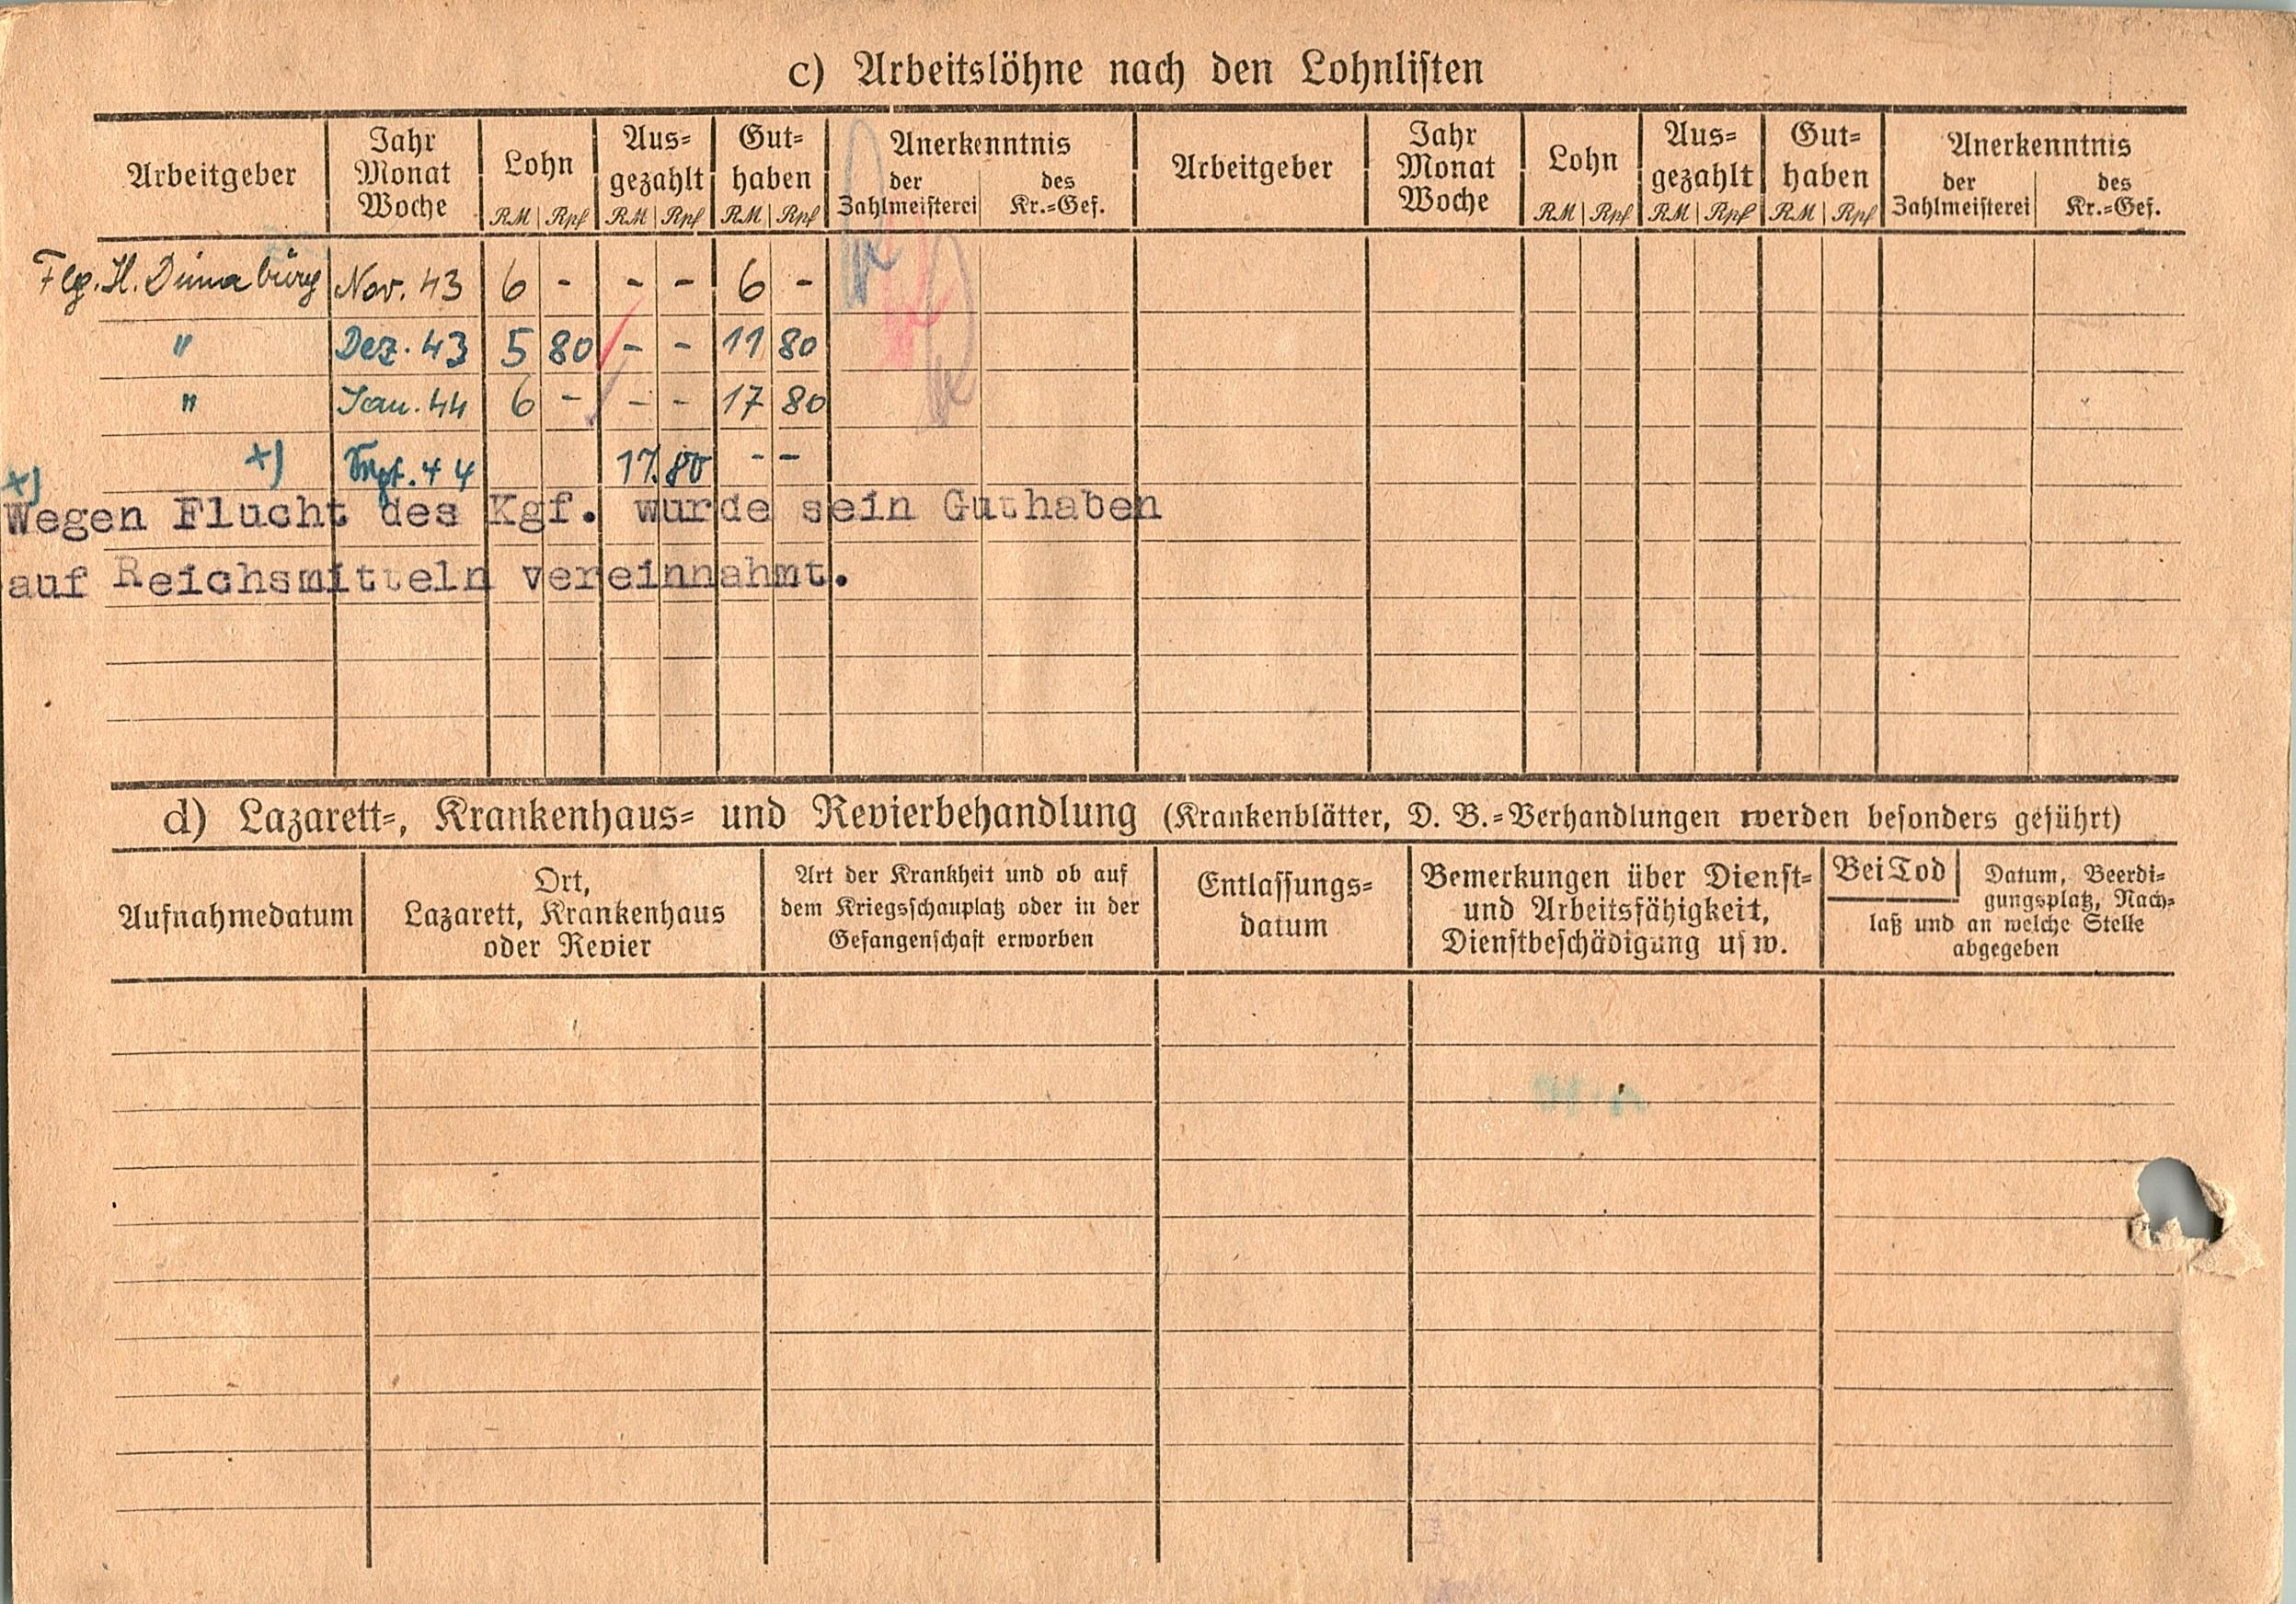 c) Arbeitslöhne nach den Lohnlisten
Arbeitgeber Jahr Monat Woche Lohn Ausgezahlt Guthaben Anerkenntnis Arbeitgeber Jahr Monat Woche Lohn Ausgezahlt Guthaben Anerkenntnis
der Zahlmeisterei des Kr.=Gef. der Zahlmeisterei des Kr.=Gef.
RM Rpf RM Rpf RM Rpf RM Rpf RM Rpf RM Rpf
Flg. H. Dünaburg Nov. 43 6 - - - 6 -
" Dez. 43 5 80 - - 11 80
" Jan. 44 6 - - - 17 80
x) 44 17.80 - -
x)
Wegen Flucht des Kgf. wurde sein Guthaben
auf Reichsmitteln vereinnahmt.
d) Lazarett=, Krankenhaus= und Revierbehandlung (Krankenblätter, D. B.=Verhandlungen werden besonders geführt)
Aufnahmedatum
Ort,
Lazarett, Krankenhaus
oder Revier
Art der Krankheit und ob auf
dem Kriegsschauplatz oder in der
Gefangenschaft erworben
Entlassungs=
datum
Bemerkungen über Dienst=
und Arbeitsfähigkeit,
Dienstbeschädigung usw.
Bei Tod Datum, Beerdi=
gungsplatz, Nach=
laß und an welche Stelle
abgegeben